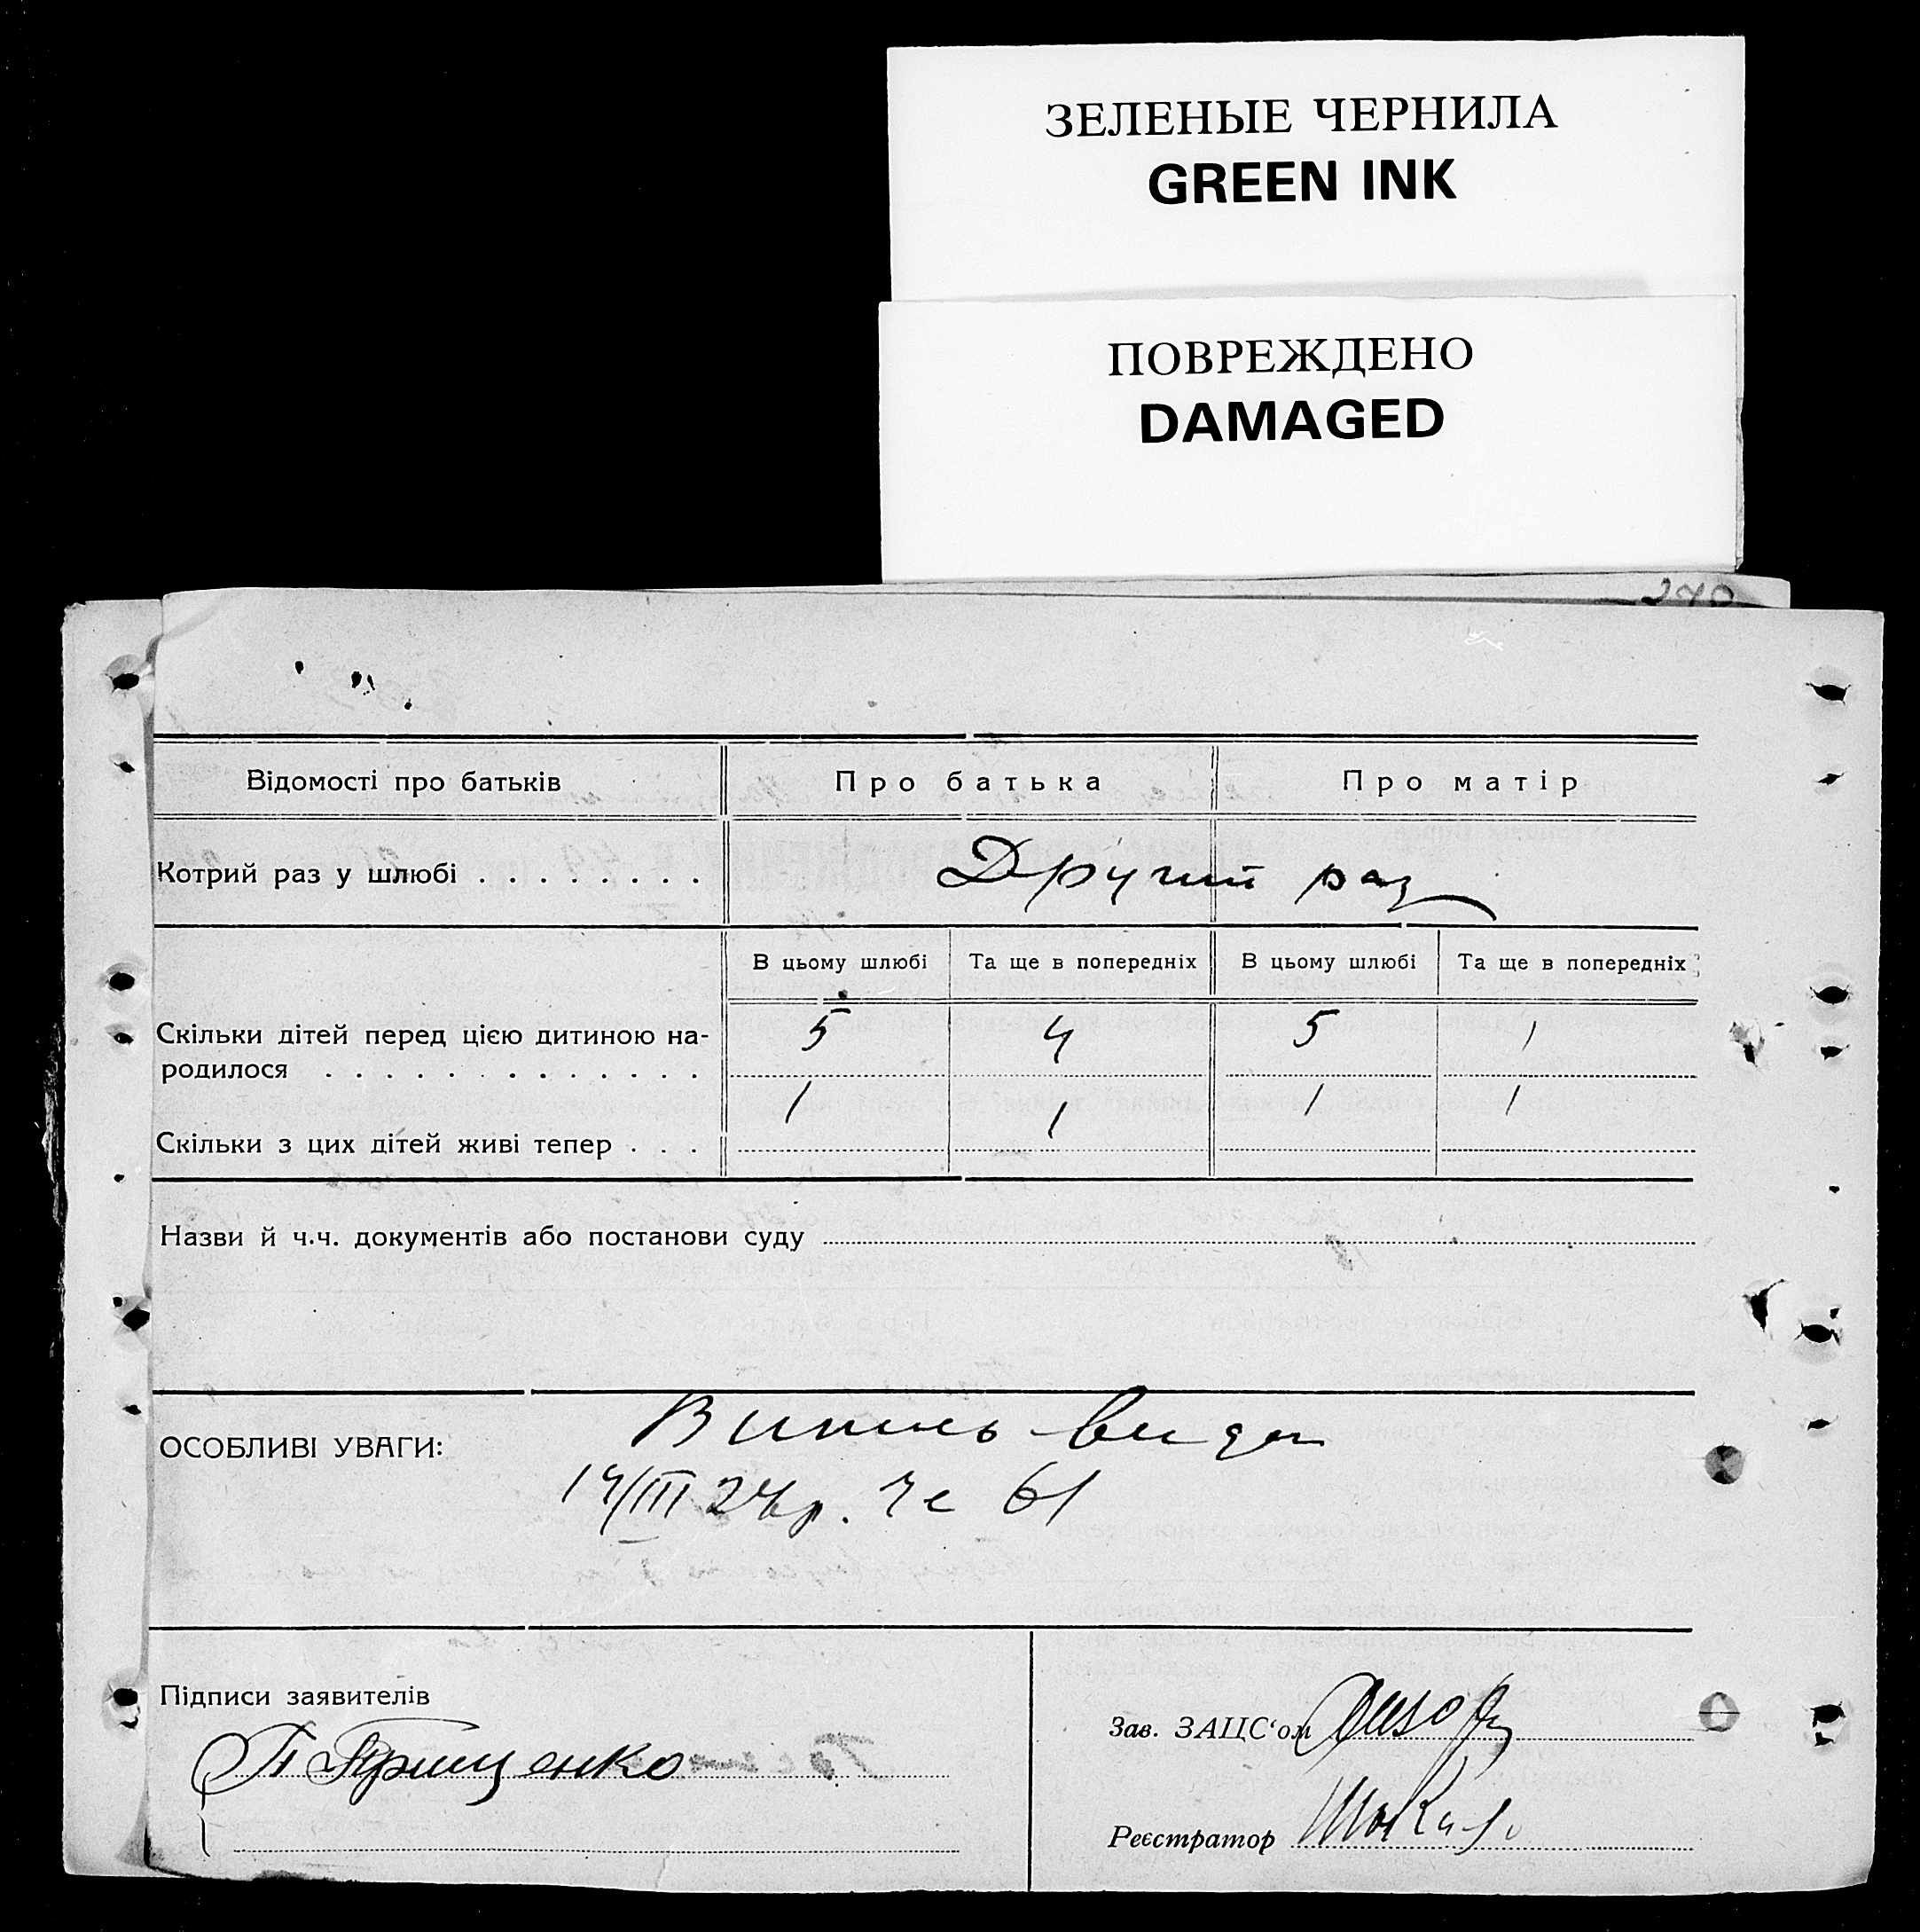 ЗЕЛЕНЫЕ ЧЕРНИЛА
GREEN INK
ПОВРЕЖДЕНО
DAMAGED
Відомості про батьків Про батька Про матір
Котрий раз у шлюбі . . . . . . . . Другий раз
В цьому шлюбі Та ще в попередніх В цьому шлюбі Та ще в попередніх
Скільки дітей перед цією дитиною на-
родилося . . . . . . . . . . . . . 5 4 5 1
Скільки з цих дітей живі тепер . . . 1 1 1 1
Назви й ч.ч. документів або постанови суду
ОСОБЛИВІ УВАГИ:
14/III 24р. 61
Підписи заявителів
П Грищенко
Зав. ЗАЦС‘ом
Реєстратор